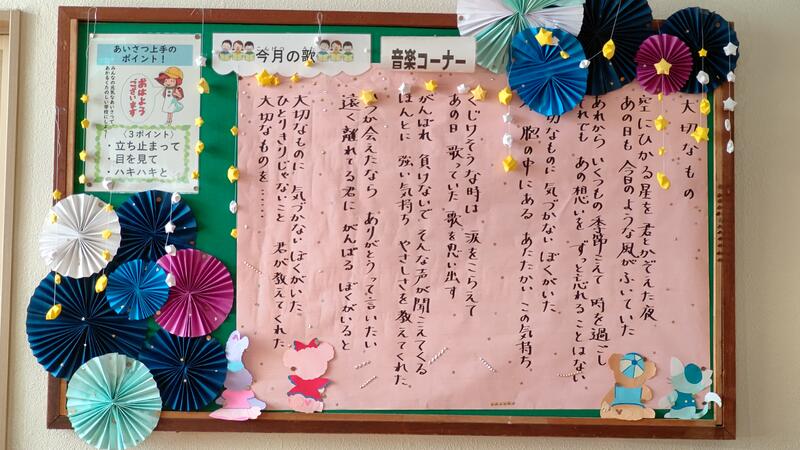 あいさつ上手の
ポイント!
みんなの元気なあいさつで
あかるくたのしい学校に
おはよう
ございます
〈3ポイント〉
・立ち止まって
・目を見て
・ハキハキと
こんげつ うた
今月の歌
音楽コーナー
大切なもの
空にひかる星を 君とかぞえた夜
あの日も 今日のような風がふいていた
あれから いくつもの季節こえて 時を過ごし
それでも あの想いを ずっと忘れることはない
切なものに 気づかないぼくがいた
胸の中にある あたたかいこの気持ち
くじけそうな時は 涙をこらえて
あの日 歌っていた 歌を思い出す
がんばれ 負けないで そんな声が聞こえてくる
ほんとに 強い気持ち やさしさを教えてくれた
か会えたなら ありがとうって言いたい
遠く離れてる君に がんばる ぼくがいると
大切なものに 気づかないぼくがいた
ひとりきりじゃないこと 君が教えてくれた
大切なものを……